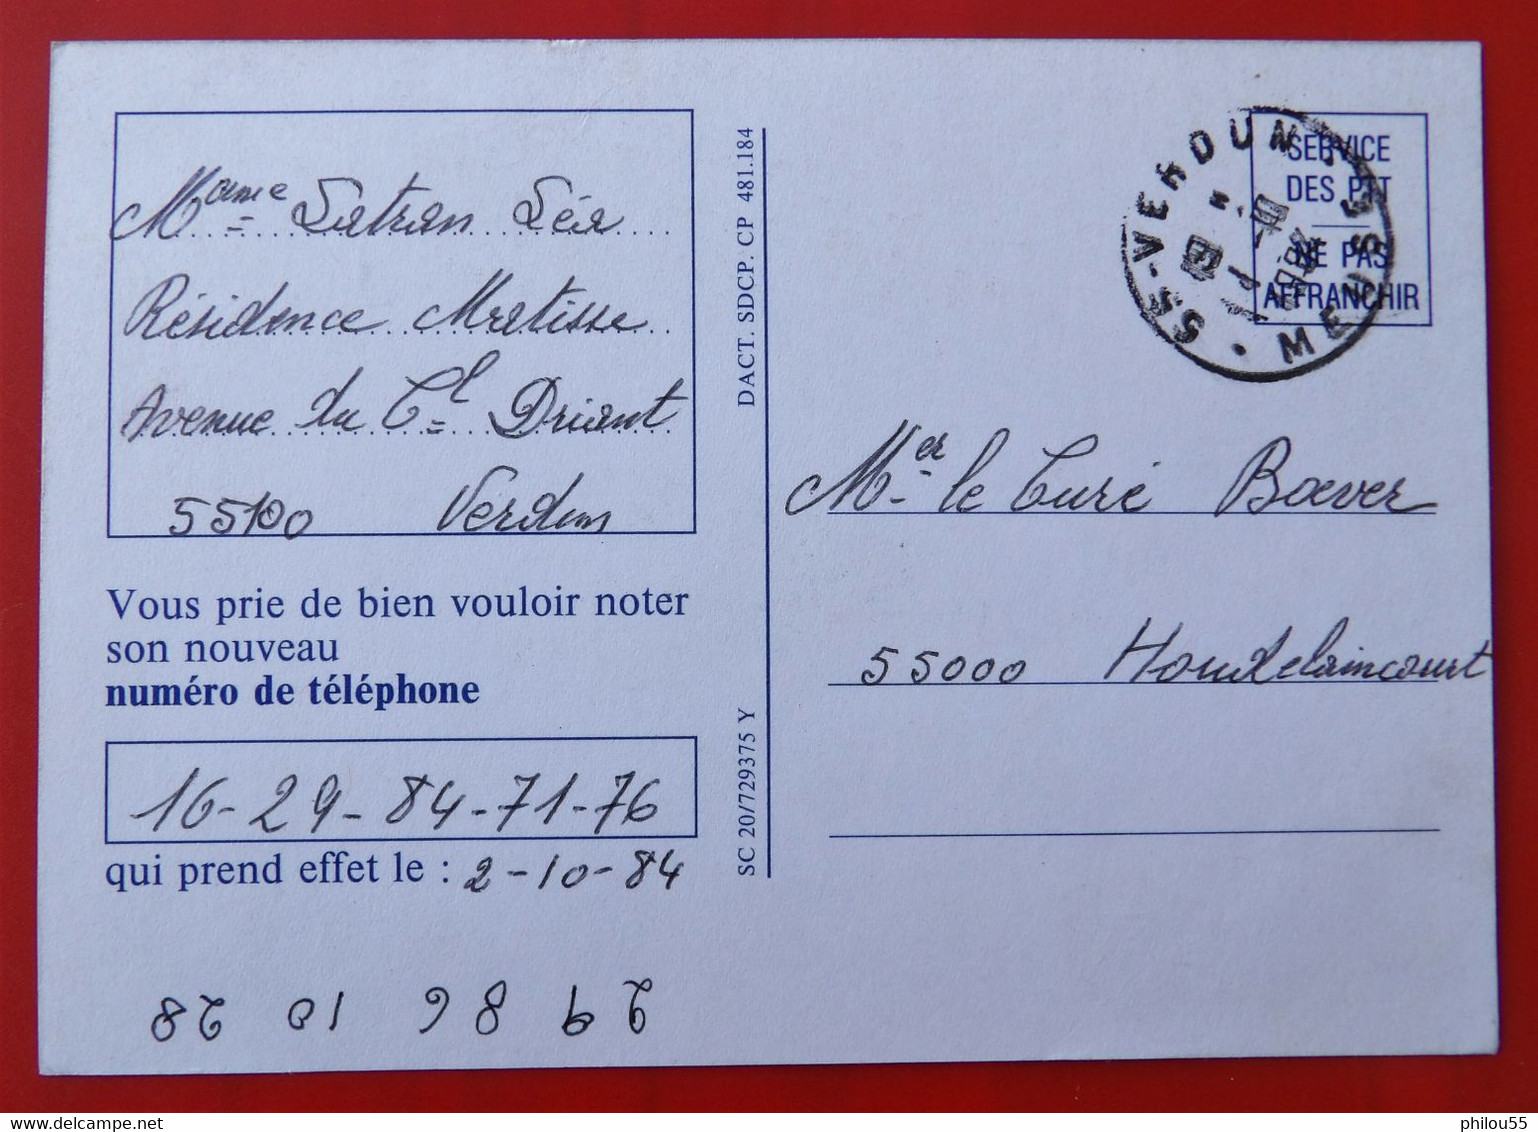 Mame Satran Léa
Résidence Matisse
Avenue du Cl Driant
55100 Verdun
Vous prie de bien vouloir noter
son nouveau
numéro de téléphone
16-29-84-71-76
qui prend effet le : 2-10-84
DACT. SDCP. CP 481.184
SC 20/729375 Y
55-VERDUN
MEUSE
SERVICE
DES PTT
NE PAS
AFFRANCHIR
Mer le Curé Boever
55000 Houdelaincourt
philou55